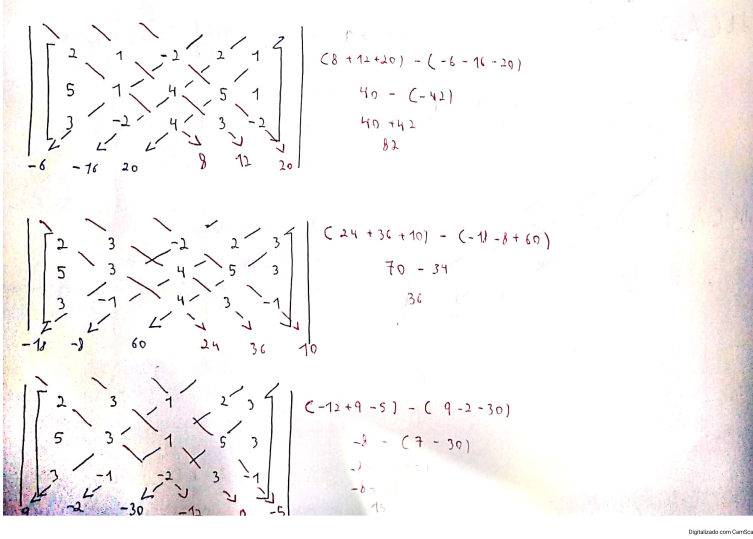 2 1 -2 2 1
5 1 4 5 1
3 -2 4 3 -2
-6 -16 20 8 12 20
(8 + 12 + 20) - (-6 - 16 - 20)
40 - (-42)
40 + 42
82
2 3 -2 2 3
5 3 4 5 3
3 -1 4 3 -1
-18 -8 60 24 36 10
(24 + 36 + 10) - (-18 - 8 + 60)
70 - 34
36
2 3 1 2 3
5 3 1 5 3
3 -1 -2 3 -1
9 -2 -30 -12 -5
(-12 + 9 - 5) - (9 - 2 - 30)
-8 - (7 - 30)
Digitalizado com CamSca